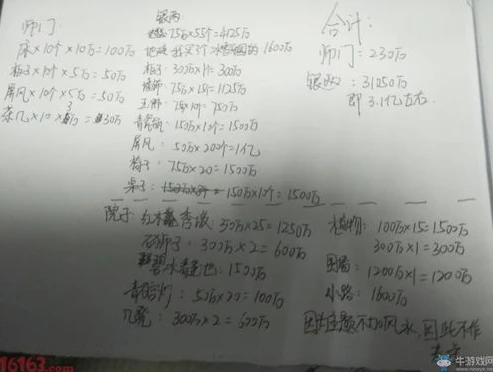 师门:
床×10个×10万=100万
椅子×10个×5万=50万
屏风×10个×5万=50万
茶几×10×3万=30万
银两
75万×55个=4125万
1600万
椅子:300万×1=300万
75万×15=1125万
75×10=750万
150万×10个=1500万
屏风:50万×200个=1亿
椅子:75万×20=1500万
桌子:150万×10个=1500万
合计:
师门:230万
银两:31050万
即3.1亿左右.
院子:
50万×25=1250万
石狮子:300万×2=600万
碧水青莲池:1500万
青石灯:50万×20=100万
300万×2=600万
植物:100万×15=1500万
300万×1=300万
围墙:1200万×1=1200万
小路:1600万
因为主题不加风水,因此不作
16163.com
牛游戏网